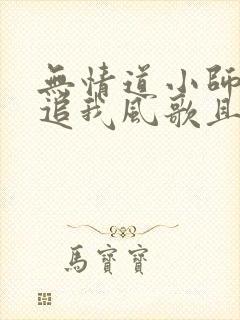 無情道小師
追我風歌且
馬寶寶